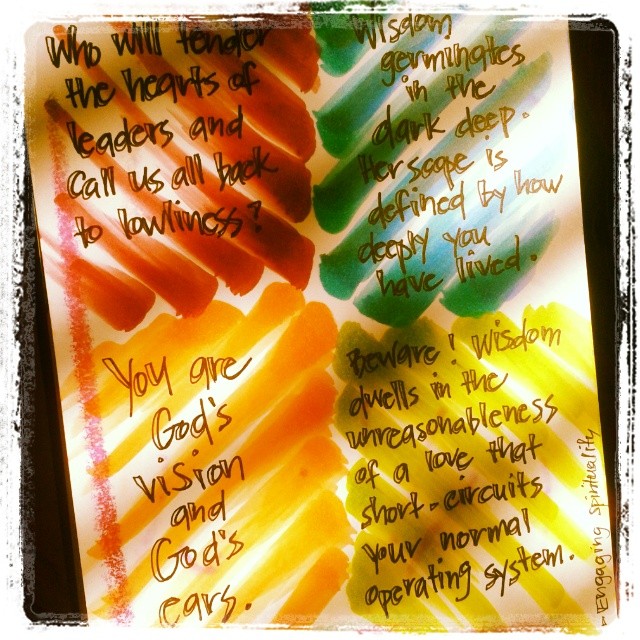 Who will tender
the hearts of
leaders and
call us all back
to lowliness?
Wisdom
germinates
in the
dark deep.
Her scope is
defined by how
deeply you
have lived.
You are
God's
vision
and
God's
ears.
Beware! Wisdom
dwells in the
unreasonableness
of a love that
short-circuits
your normal
operating system.
- Engaging Spirituality